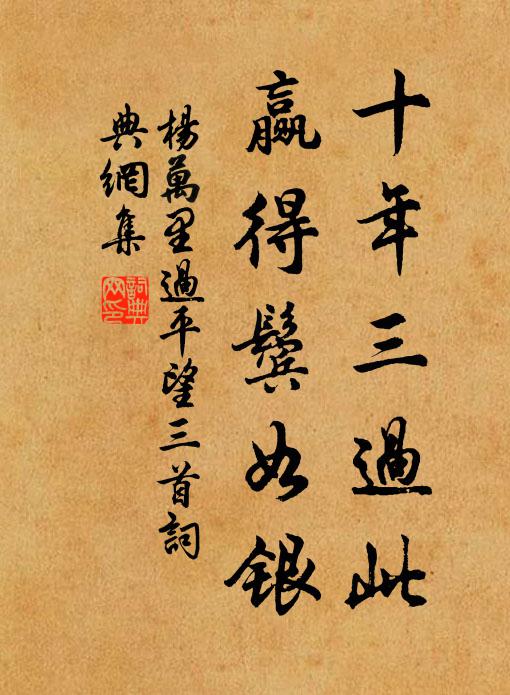 十年三過此
贏得鬢如銀
楊萬里過平望三首詞
典網集
詞典
网印